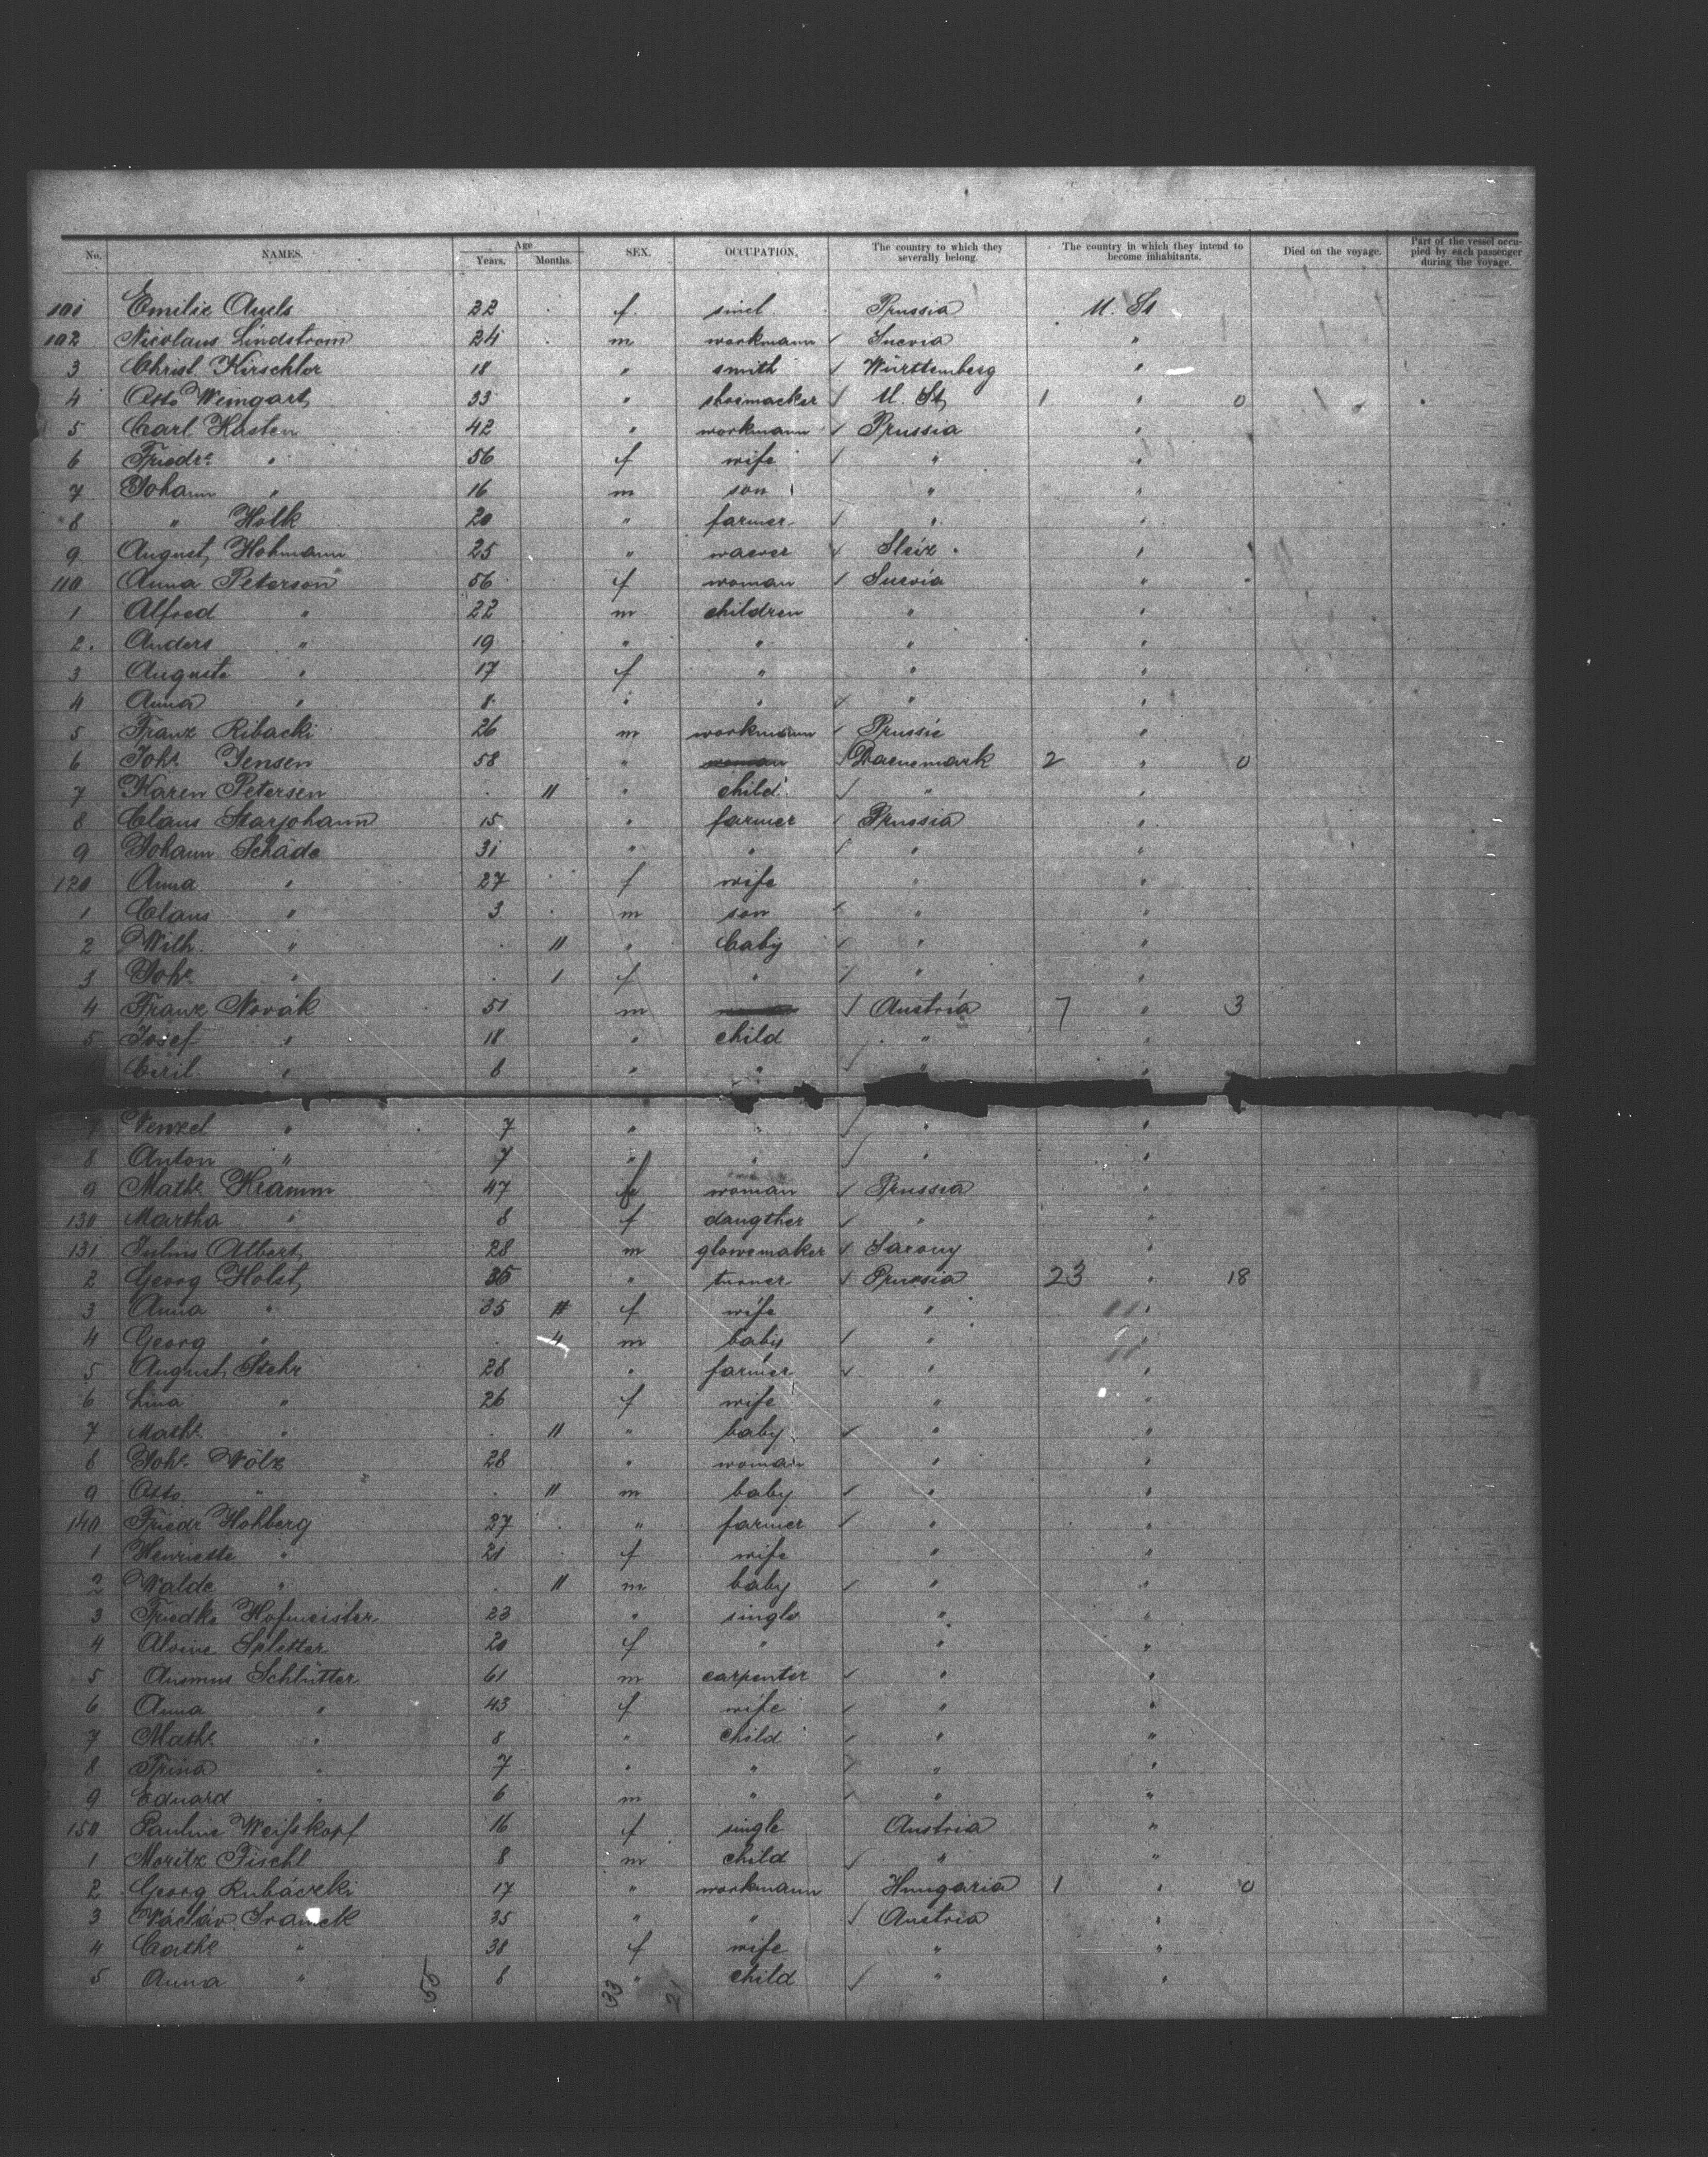 No. NAMES. Age Years. Months. SEX. OCCUPATION. The country to which they severally belong. The country in which they intend to become inhabitants. Died on the voyage. Part of the vessel occupied by each passenger during the voyage.
101 Emilie 22 f. Prussia U. St
102 Nicolaus Lindstrom 24 m workmann Suevia "
3 Christ. Kirschler 18 " smith Württemberg "
4 Otto Weingart 33 " shoemacker U. St, 1 " 0
5 Carl Kasten 42 " workmann Prussia "
6 Friedre " 56 f wife " "
7 Johann " 16 m son " "
8 " Holk 20 " farmer " "
9 August Hohmann 25 " waever "
110 Anna Peterson 56 f woman Suevia "
1 Alfred " 22 m children " "
2. Anders " 19 " " " "
3 Auguste " 17 f " " "
4 Anna " 8 " " " "
5 Franz Ribacki 26 m workmann Prussie "
6 Johe Jensen 58 " Daenemark 2 " 0
7 Karen Petersen 11 " child " "
8 Claus Starjohann 15 " farmer Prussia "
9 Johann Schade 31 " " " "
120 Anna " 27 f wife " "
1 Claus " 3 m son " "
2 Wilh. " 11 " baby " "
3 Johe " 1 f " " "
4 Franz Novák 51 m Austria 7 " 3
5 Josef " 18 " child " "
Ciril " 8 " " " "
Venzel " 7 " " " "
8 Anton " 7 " " " "
9 Mathe Kramm 47 f woman Prussia "
130 Martha " 8 f daugther " "
131 Julius Albert 28 m glowemaker Saxony "
2 Georg Holst 36 " turner Prussia 23 " 18
3 Anna " 35 f wife " "
4 Georg " 4 m baby " "
5 August Stehr 28 " farmer " "
6 Lina " 26 f wife " "
7 Mathe " 11 " baby " "
8 Johe Völz 28 " woman " "
9 Otto " 11 m baby " "
140 Friedr Hohberg 27 " farmer " "
1 Henriette " 21 f wife " "
2 Walde " 11 m baby " "
3 Friedke Hofmeister 23 " single " "
4 Alvine Spletter 20 f " " "
5 Ausmus Schlütter 61 m carpenter " "
6 Anna " 43 f wife " "
7 Mathe " 8 " child " "
8 Trina " 7 " " " "
9 Eduard " 6 m " " "
150 Pauline Weifskopf 16 f single Austria "
1 Moritz Fischl 8 m child " "
2 Georg Rubáczki 17 " workmann Hungaria 1 " 0
3 Václáv 35 " " Austria "
4 Cathe " 38 f wife " "
5 Anna " 8 " child " "
55 33 21